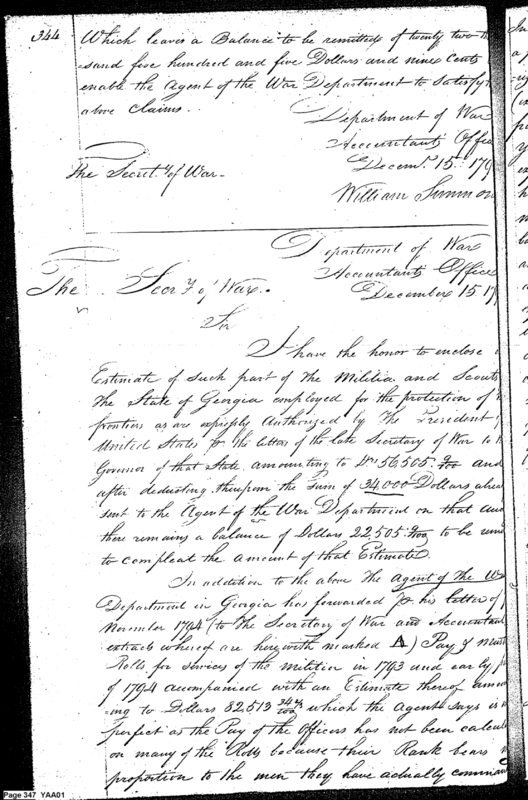 344
Which leaves a Balance to be remitted of twenty two
sand five hundred and five Dollars and nine Cents
enable the Agent of the War Department to Satisfy
above Claims.
Department of War
Accountants Office
Decemr. 15. 179
The Secrety. of War
William Simmon
Department of War
Accountants Office
December 15. 17
The Secry of War.
Sir
I have the honor to enclose
Estimate of such part of the Militia and Scouts
the State of Georgia employed for the protection of
frontiers as are expressly Authorized by the President
United States the letters of the late Secretary of War to
Govenor of that State amounting to 56,505. 9/100 and
after deducting thereupon the sum of 34,000 Dollars
sent to the Agent of the War Department on that
there remains a balance of Dollars 22,505. 9/100 to be
to compleat the amount of that Estimate.
In addition to the above the Agent of the W
Department in Georgia has forwarded his letter of
November 1794 (to the Secretary of War and Accountant
extracts whereof are herewith marked A) Pay & Must
Rolls for services of the militia in 1793 and early
of 1794 accompanied with an Estimate thereof
ing to Dollars 82,513 34/100 which the Agent says is
perfect as the Pay of the Officers has not been
on many of the Rolls because their Rank bears
proportion to the men they have actually
Page 347 YAA01